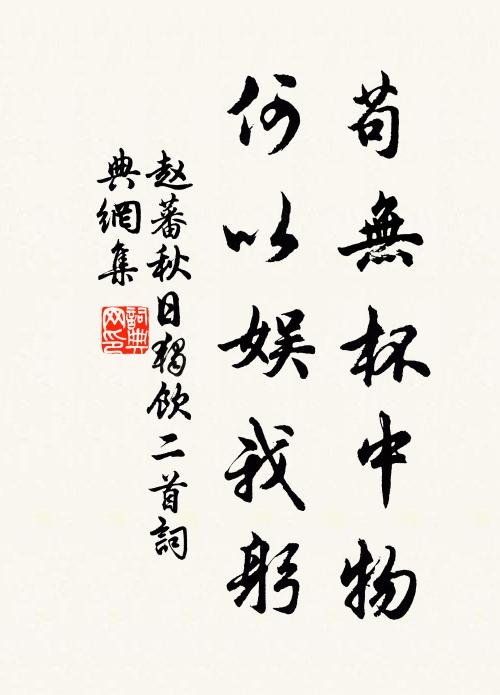 苟無杯中物
何以娱我躬
赵蕃秋日独飲二首詞
典網集
詞典
网印